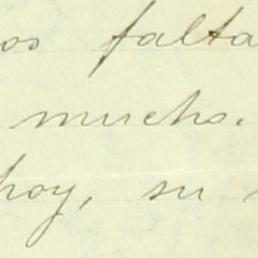 os falta
mucho.
hoy, su